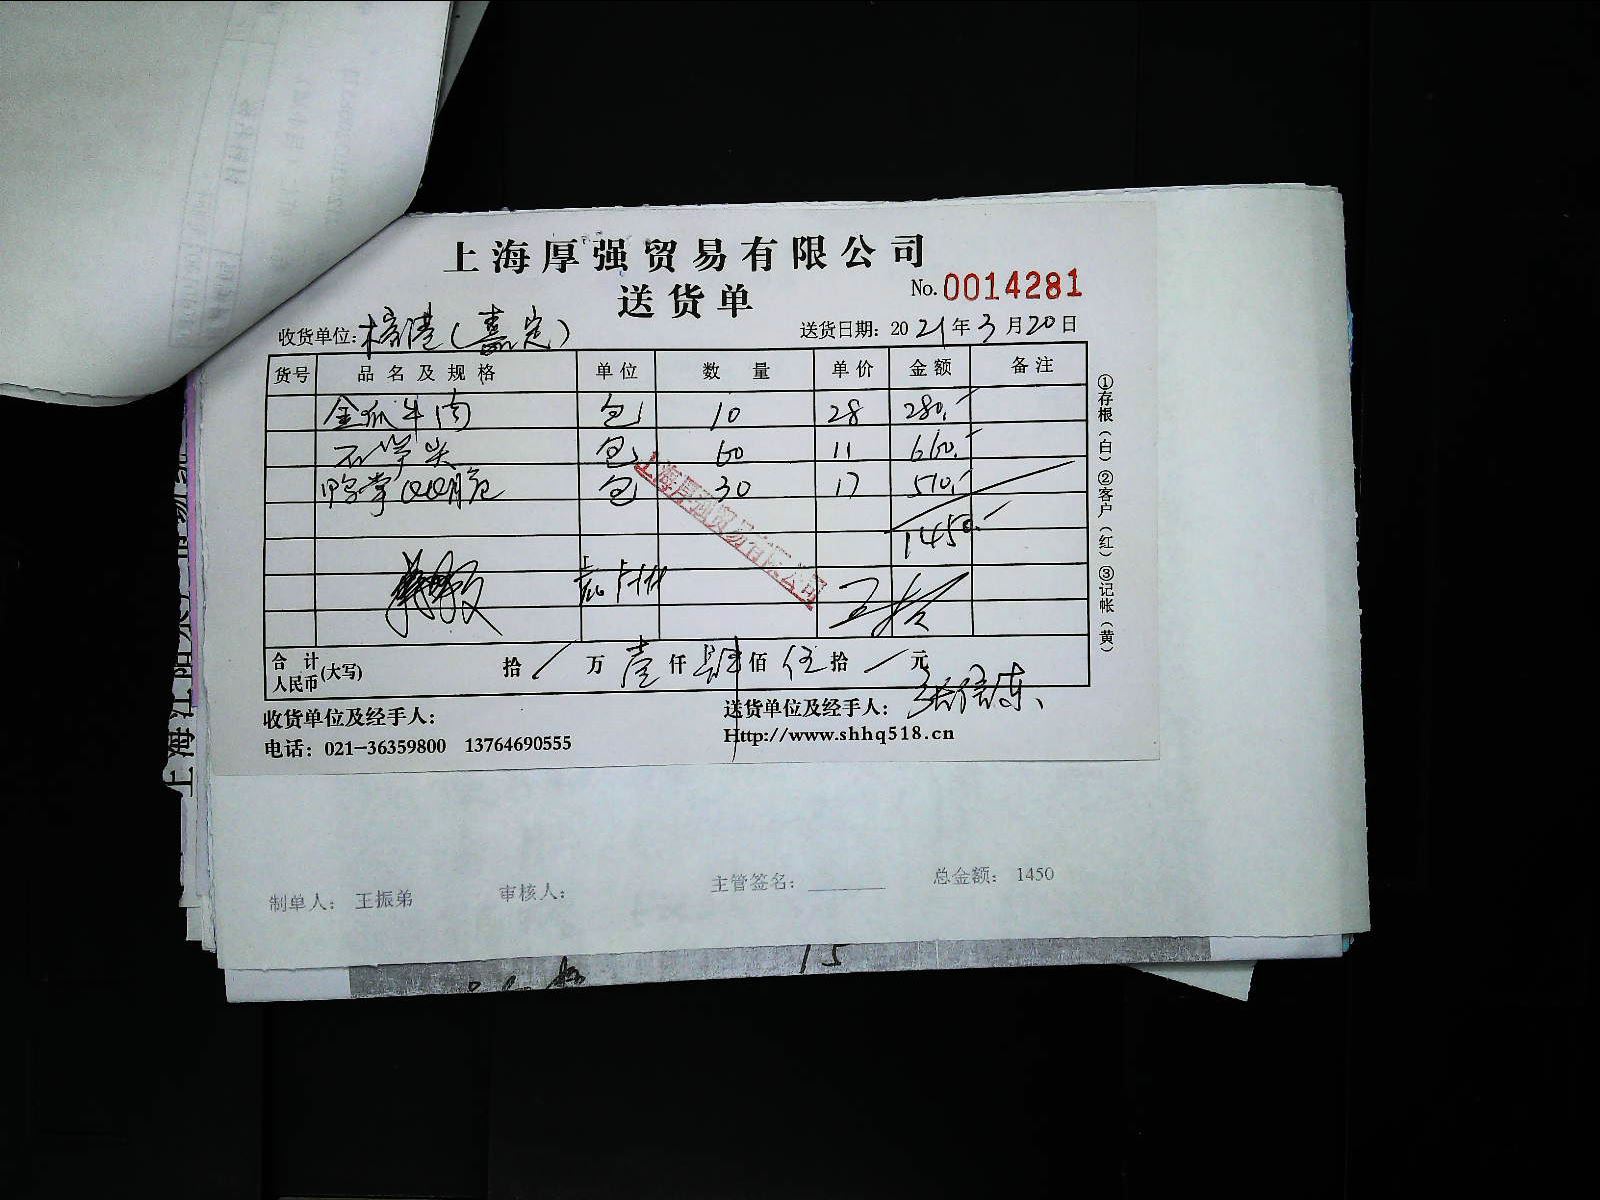 上海厚强贸易有限公司
送货单
No. 0014281
收货单位: 榕港(嘉定)
送货日期: 2021年3月20日
货号 品名及规格 单位 数量 单价 金额 备注
金瓜牛肉 包 10 28 280.-
石笋尖 包 60 11 660.-
鸭掌QQ脆 包 30 17 510.-
1450.-
上海厚强贸易有限公司
合计人民币(大写) 拾 / 万 壹 仟 肆 佰 伍 拾 / 元
收货单位及经手人:
送货单位及经手人:
电话: 021-36359800 13764690555
Http://www.shhq518.cn
①存根(白)②客户(红)③记帐(黄)
制单人: 王振弟 审核人: 主管签名: 总金额: 1450
15